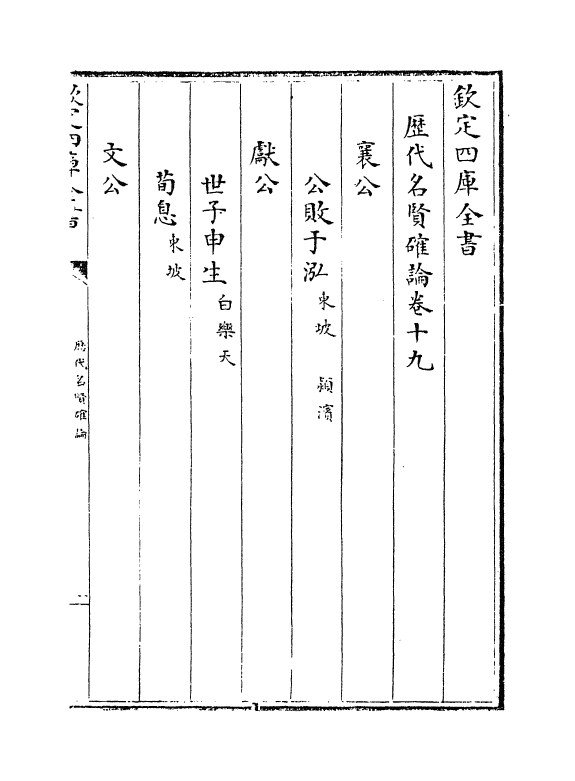 欽定四庫全書
歴代名賢確論卷十九
襄公
公敗于泓東坡 潁濱
獻公
世子申生白樂天
荀息東坡
文公
歴代名賢確論